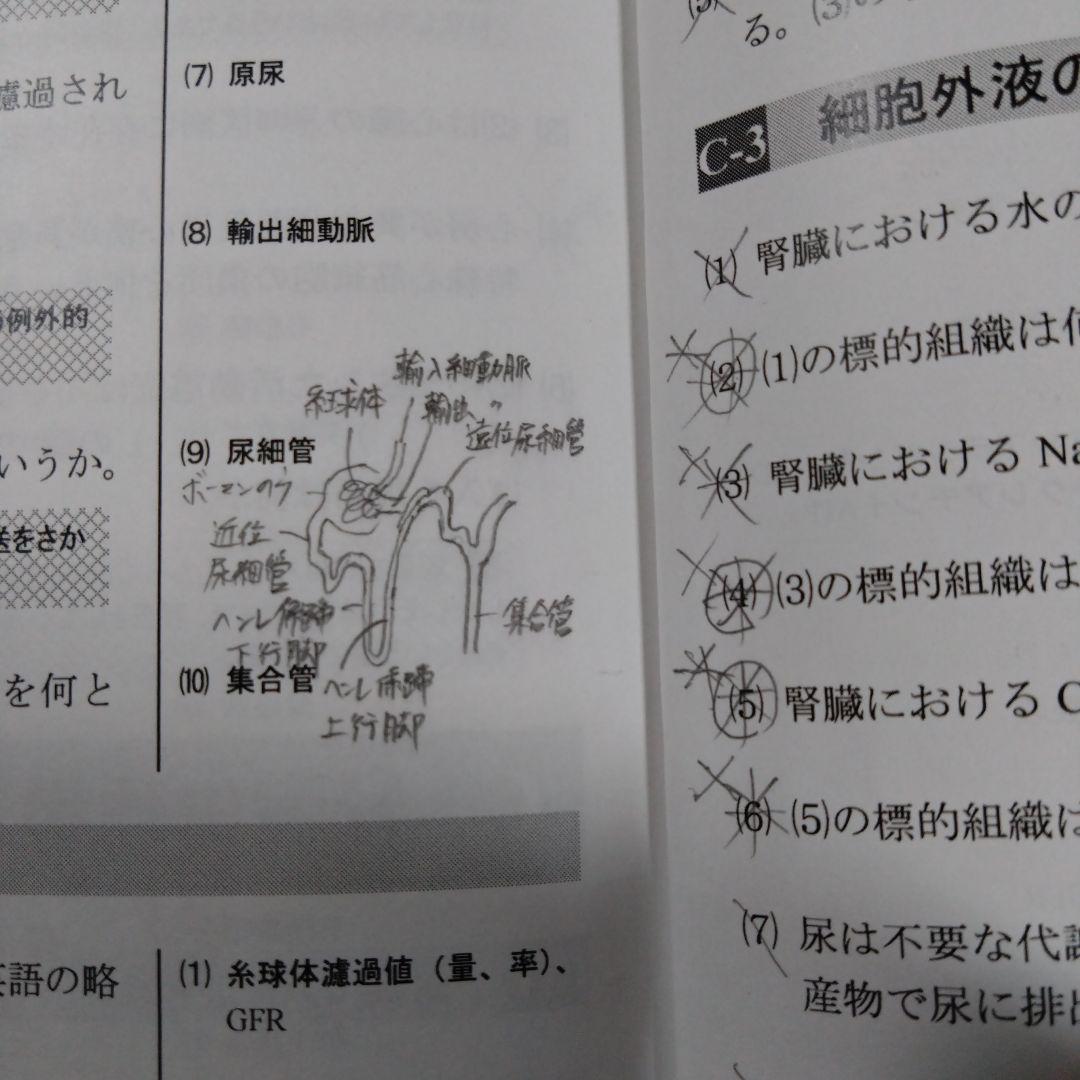 濾過され
例外的
いうか。
送をさか
を何と
英語の略
(7) 原尿
(8) 輸出細動脈
輸入細動脈
糸球体
輸出〃
遠位尿細管
(9) 尿細管
ボーマンのう
近位
尿細管
ヘンレ係蹄
下行脚
集合管
(10) 集合管
ヘンレ係蹄
上行脚
(1) 糸球体濾過値（量、率）、
GFR
る。
C-3 細胞外液の
(1) 腎臓における水の
(2) (1)の標的組織は何
(3) 腎臓における Na
(4) (3)の標的組織は
(5) 腎臓における C
(6) (5)の標的組織は
(7) 尿は不要な代謝
産物で尿に排出